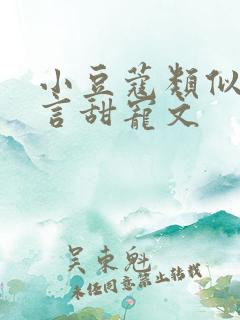 小豆蔻類似
言甜寵文
吴東魁
未任同意禁止转载